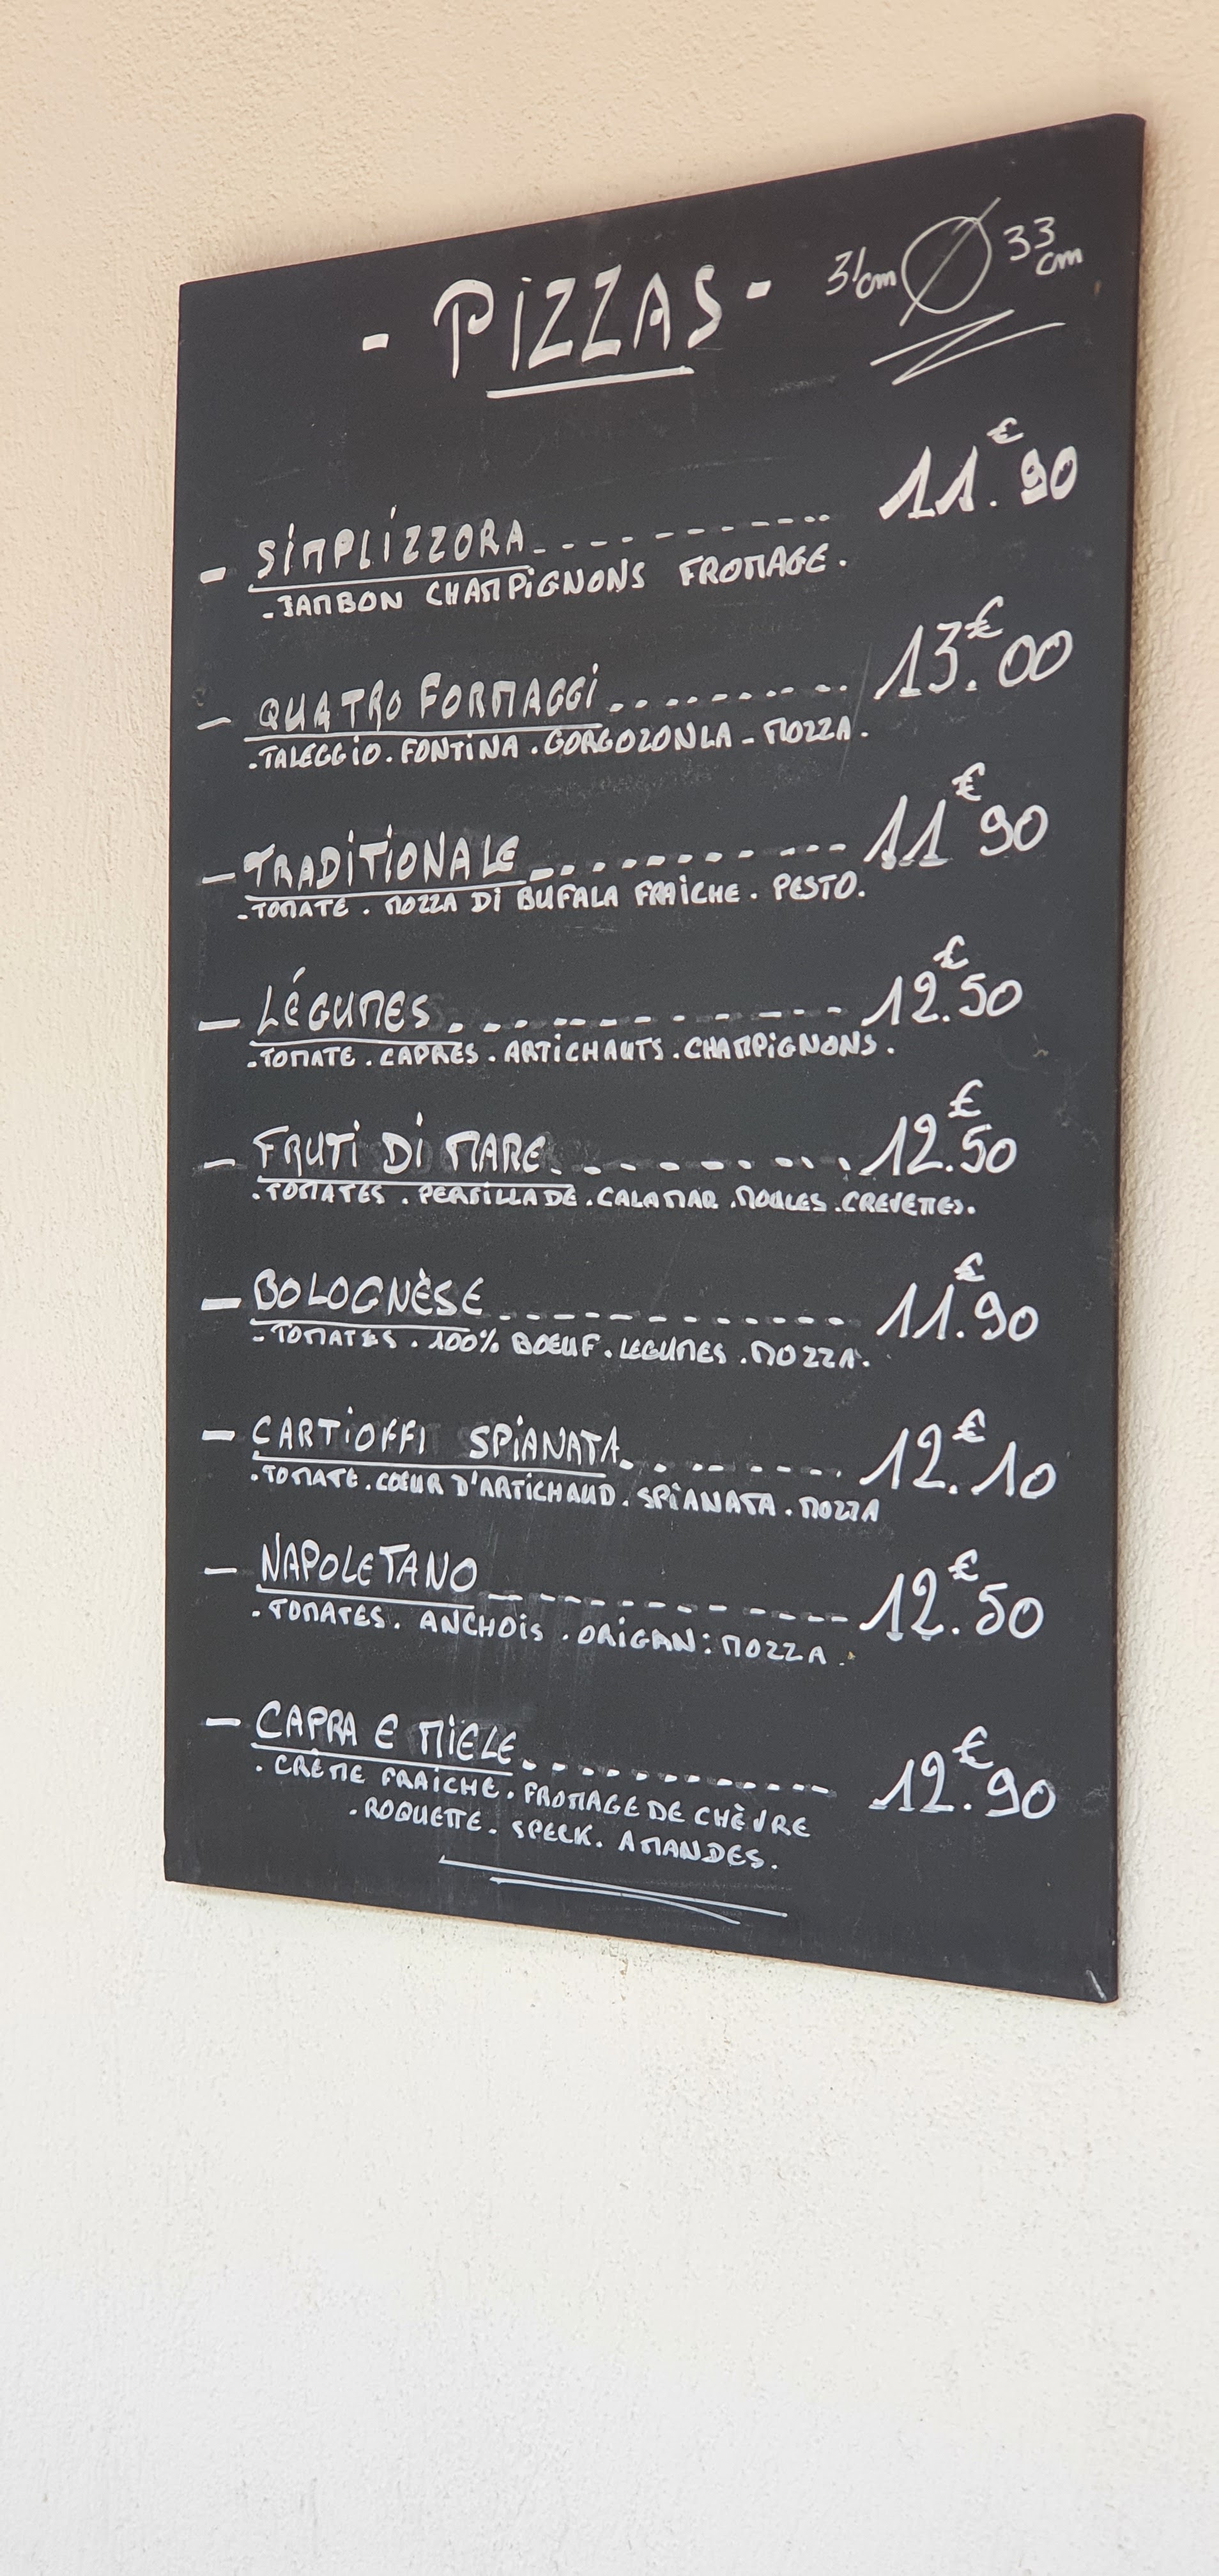 - PIZZAS - 31cm Ø 33 cm
- SIMPLÍZZORA 11.€90
- JAMBON CHAMPIGNONS FROMAGE.
- QUATRO FORMAGGI 13.€00
- TALEGGIO. FONTINA. GORGOZONLA - MOZZA.
- TRADITIONALE 11€90
- TOMATE. MOZZA DI BUFALA FRAÎCHE. PESTO.
- LÉGUMES 12.€50
- TOMATE. CAPRES. ARTICHAUTS. CHAMPIGNONS.
- FRUTI DI MARE 12.€50
. TOMATES. PERSILLADE. CALAMAR. MOULES. CREVETTES.
- BOLOGNÈSE 11.€90
- TOMATES. 100% BOEUF. LEGUMES. MOZZA.
- CARTIOFFI SPIANATA 12.€10
. TOMATE. COEUR D'ARTICHAUD. SPIANATA. MOZZA
- NAPOLETANO 12.€50
. TOMATES. ANCHOIS. ORIGAN: MOZZA.
- CAPRA E MIELE 12.€90
. CRÈME FRAICHE. FROMAGE DE CHÈVRE
. ROQUETTE. SPECK. AMANDES.